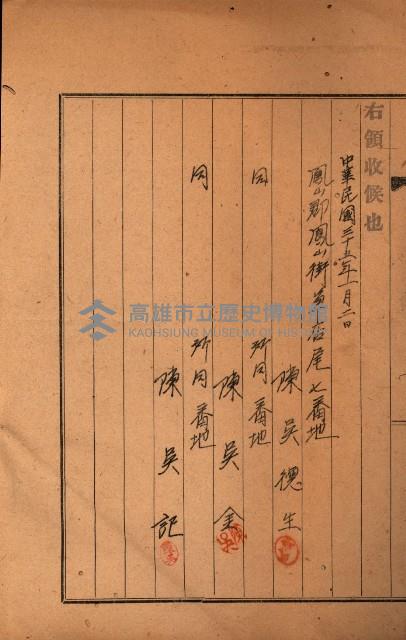 右領收候也
中華民國三十五年一月二日
鳳山郡鳳山街 尾七番地
陳吳德生
同 所同番地
陳吳金
同 所同番地
陳吳記
高雄市立歷史博物館
KAOHSIUNG MUSEUM OF HISTORY